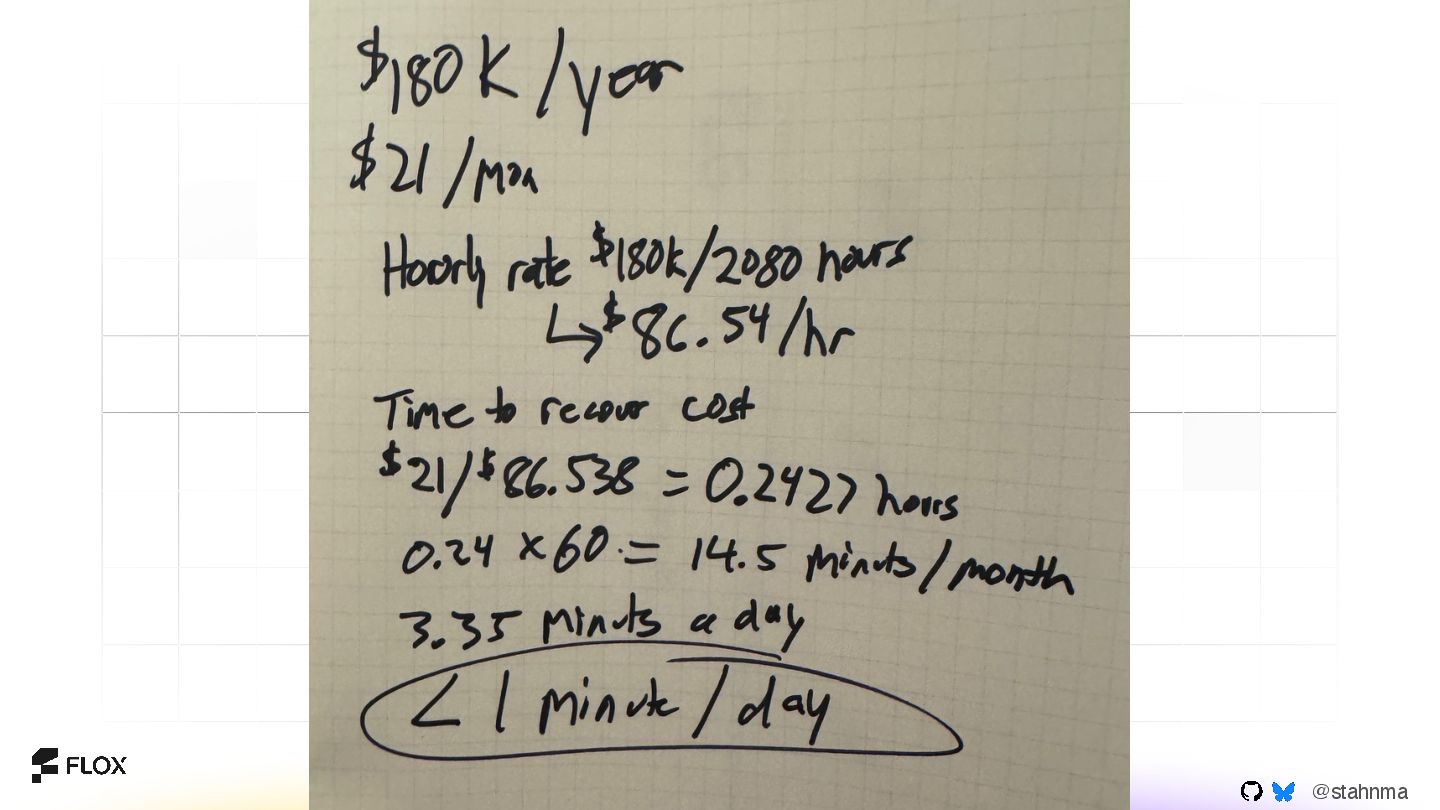 $180K/year
$21/mon
Hourly rate $180k/2080 hours
↳$86.54/hr
Time to recover cost
$21/$86.538 = 0.2427 hours
0.24 x 60 = 14.5 minuts/month
3.35 minuts a day
< 1 minute/day
FLOX
@stahnma